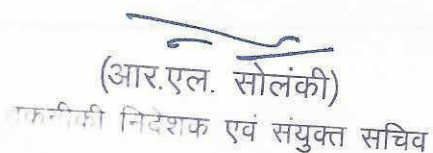 (आर.एल. सोलंकी)
तकनीकी निदेशक एवं संयुक्त सचिव